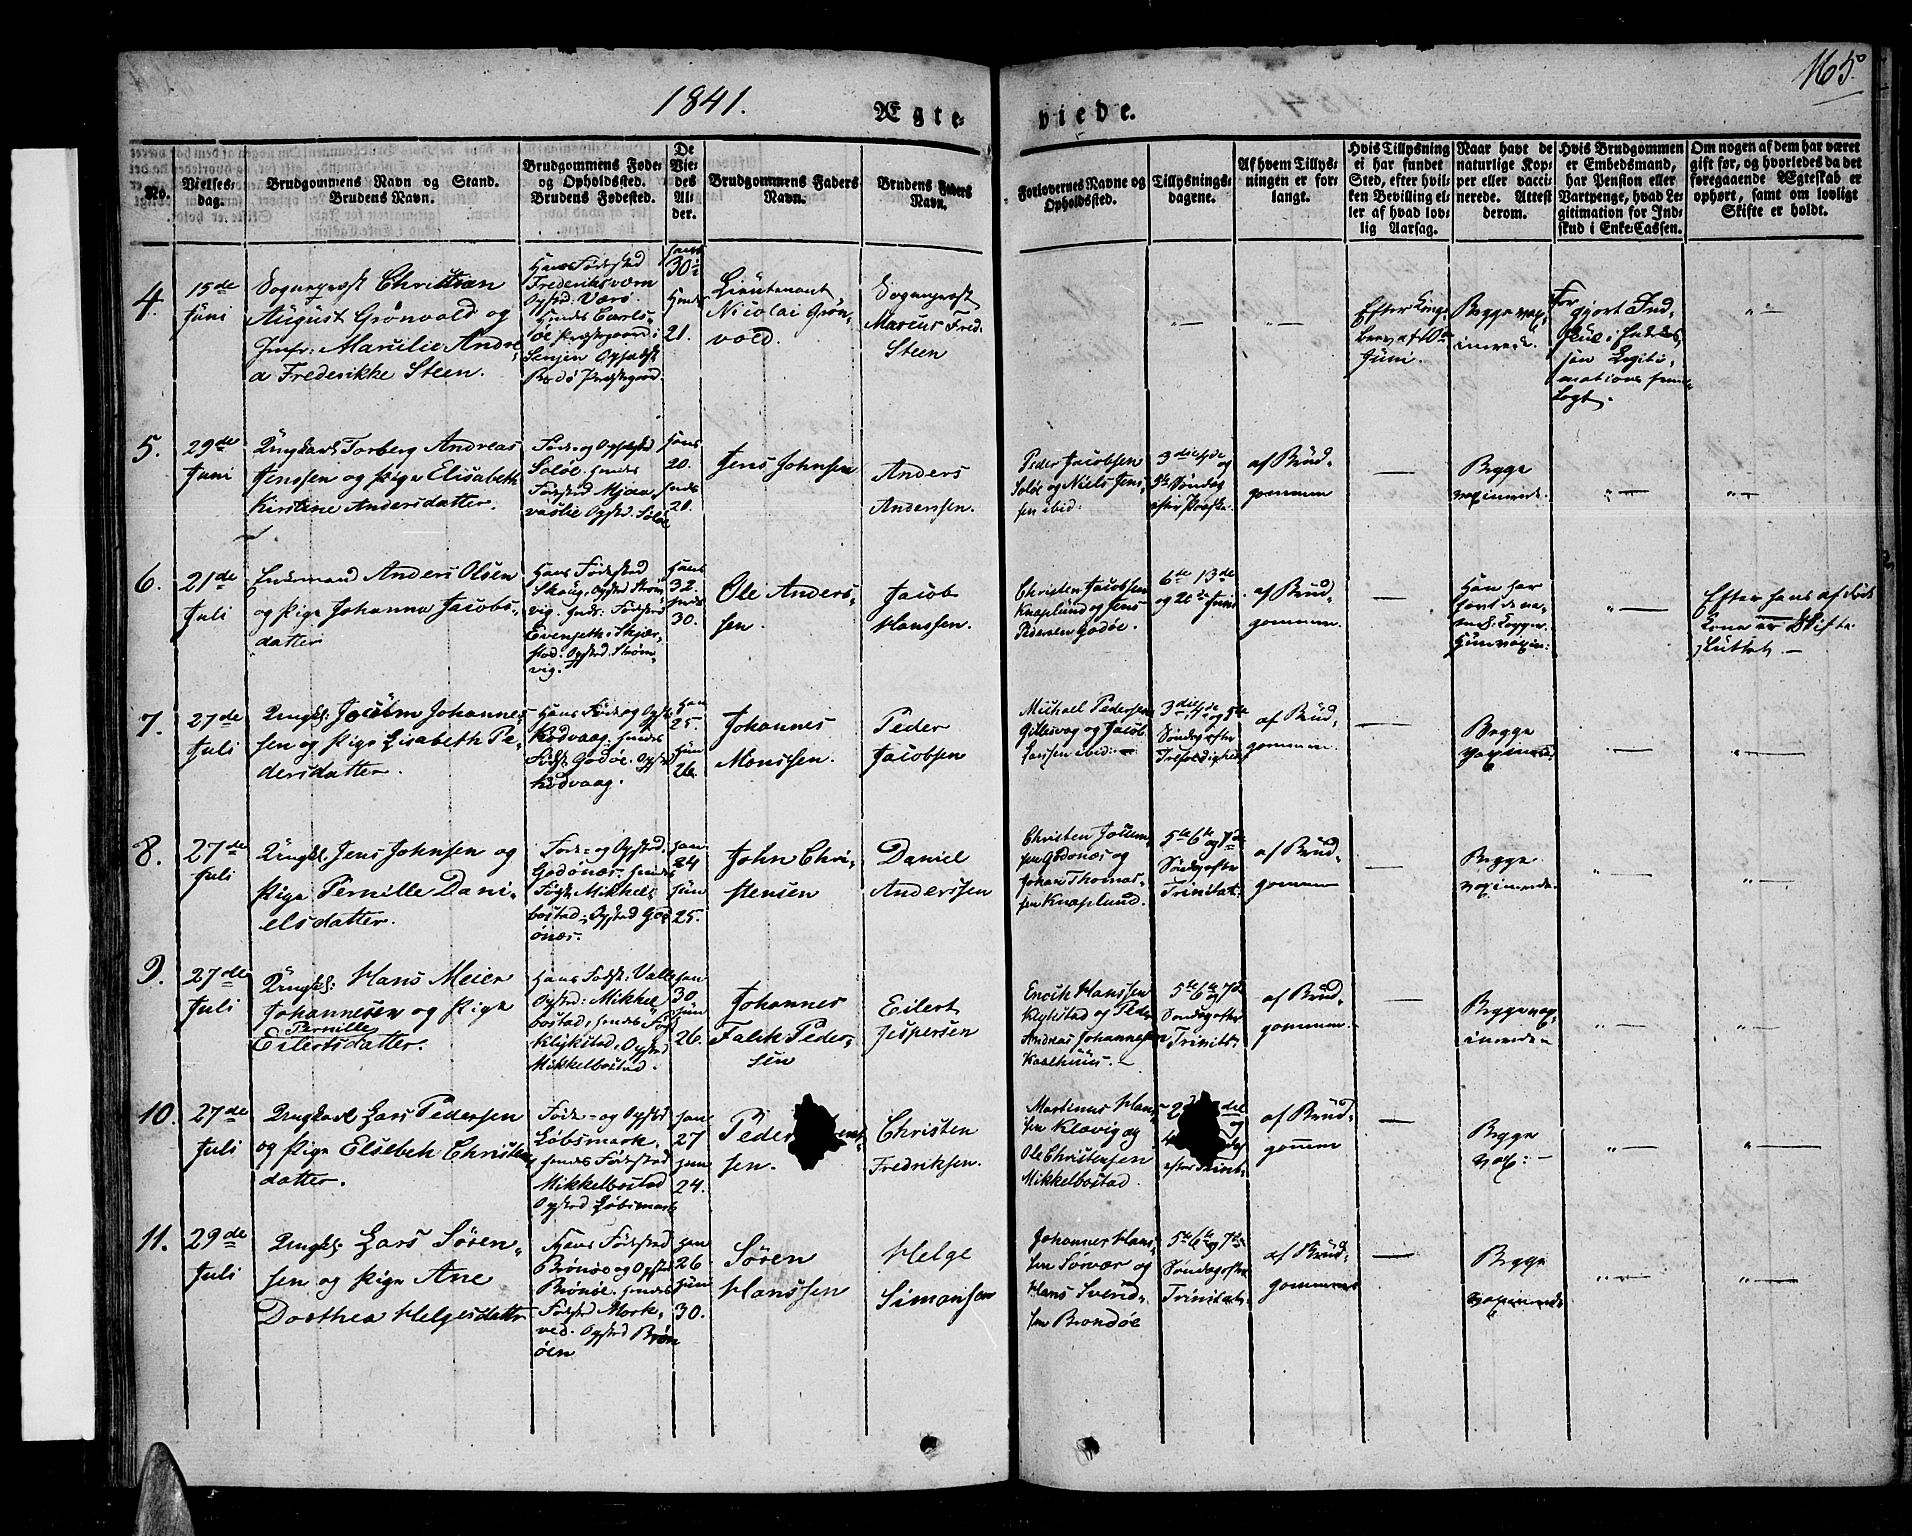 165.
1841.
Ægte-
viede.
No.
Vielses-
dag.
Brudgommens Navn og Stand.
Brudens Navn.
Brudgommens Føde-
og Opholdssted.
Brudens Fødested.
De
Vie-
des
Al-
der.
Brudgommens Faders
Navn.
Brudens Faders
Navn.
Forlovernes Navne og
Opholdssted.
Tillysnings-
dagene.
Af hvem Tillys-
ningen er for-
langt.
Hvis Tillysning
ei har fundet
Sted, efter hvil-
ken Bevilling el-
ler af hvad lov-
lig Aarsag.
Naar havt de
naturlige Kop-
per eller vacci-
nerede. Attest
derom.
Hvis Brudgommen
er Embedsmand,
har Pension eller
Vartpenge, hvad Le-
gitimation for Ind-
skud i Enke-Cassen.
Om nogen af dem har været
gift før, og hvorledes da det
foregaaende Ægteskab er
ophørt, samt om lovligt
Skifte er holdt.
4.
15de
Juni
Sogneprest Christian
August Grönvold og
Jmfr: Marulie Andre
a Frederikke Steen.
Hans Födested
Frederiksværn
Opsted: Værö.
Hendes Carls-
öe Præstegaard i
Senjen Opholdst
Bodö Præstegaard.
Hans
30
Hendes
21.
Lieutenant
Nicolai Grön-
vold.
Sogneprest
Marcus Fred.
Steen
Efter Kong-
brev af 10de
Juni.
Begge vax-
inerede.
For
gjort Ind-
skud i
Legiti-
mations frem-
lagt.
5.
29de
Juni
Ungkarl Torberg Andreas
Jenssen og Pige Elisabeth
Kirstine Andersdatter.
Föde og Opholdsted
Solöe. Hendes
Födested Mjaa-
vaslie Opsted. Solöe
Hans
20.
Hendes
20.
Jens Johnsen
Anders
Anderssen.
Peder Jacobsen
Solöe og Niels Jens-
sen ibid:
3die 4de og
5te Söndag
efter Paaske.
af Brüd-
gommen
Begge
vaxinerede.
6.
21de
Juli
Enkemand Anders Olsen
og Pige Johanna Jacobs-
datter
Hans Födested
Skaug. Opsted Ström-
vig. Hendes Födested
Evensgeth i Skjer-
stad. Opsted. Ström-
vig.
Hans
32.
Hendes
30.
Ole Anders-
sen.
Jacob
Hanssen.
Christen Jacobsen
Knaplund og Jens
Pedersen Godöe.
6te 13de
og 20de Juni
af Brüd-
gommen.
Han har
havt de na-
turl. Kopper.
Hun vaxin:
Efter hans afdöde
Kone er Skifte
sluttet. —
7.
27de
Juli
Ungkl: Joakim Johannes-
sen og Pige Lisabeth Pe-
dersdatter.
Hans Föde og Opst
Kodvaag. Hendes
Födst Godöe. Opsted
Kodvaag.
Han
25.
Hün
26.
Johannes
Monssen.
Peder
Jacobsen
Michael Pedersen
Gillesvog og Jacob
Larssen ibid:
3die 4de og 5te
Söndag efter
Trefoldighed
af Brüd-
gommen.
Begge
vaxinered:
8.
27de
Juli
Ungkl. Jens Johnsen og
Pige Pernille Dani-
elsdatter.
Föde- og Opsted.
Godönæs. Hendes
Födst. Mikkel-
bostad. Opsted God-
önæs.
Han
24
Hün
25.
John Chri-
stensen
Daniel
Anderssen
Christen Joakim-
sen Godönæs og
Johan Thomas-
sen Knaplund.
5te 6te og 7de
Söndag efter
Trinitat:
af Brüd-
gommen
Begge
vaxinerede.
9.
27de
Juli
Ungkl: Hans Meier
Johannesen og Pige
Pernille
Eilertsdatter.
Hans Födst: Valle
Opsted: Mikkel-
bostad, Hendes Födst
Klykstad, Opsted
Mikkelbostad.
Han
30.
Hün
26.
Johannes
Falch Peder-
sen
Eilert
Jespersen
Encik Hanssen
Klykstad og Peder
Andreas Johannesen
Kaalhuus. —
5te 6te og 7de
Söndag efter
Trinit:
af Brüd-
gommen.
Begge vax-
inerede
10.
27de
Juli
Ungkarl Lars Pedersen
og Pige Elsebeh Christen-
datter.
Föde- og Opsted
Löbsmark.
Hendes Födested
Mikkelbostad
Opsted Löbsmark
Han
27
Hun
24.
Peder
sen.
Christen
Fredriksen.
Martinus Han-
sen Klævig og
Ole Christensen
Mikkelbostad.
og
efter Trinit:
af Brüd-
gomme
Begge
vax: —
11.
29de
Juli
Ungkl: Lars Sören-
sen og Pige Ane
Dorthea Helgesdatter
Hans Födested
Brönöe og Opsted
Brönöe. Hendes
Födested Mork-
ved. Opsted Brön-
öen
Han
26
Hun
30.
Sören
Hanssen
Helge
Simonsen
Johannes Han-
sen Sörvær og
Hans Svend-
sen Brondöe
5te 6te og 7de
Söndag efter
Trinitat:
af Brüd-
gommen
Begge
vaxinerede